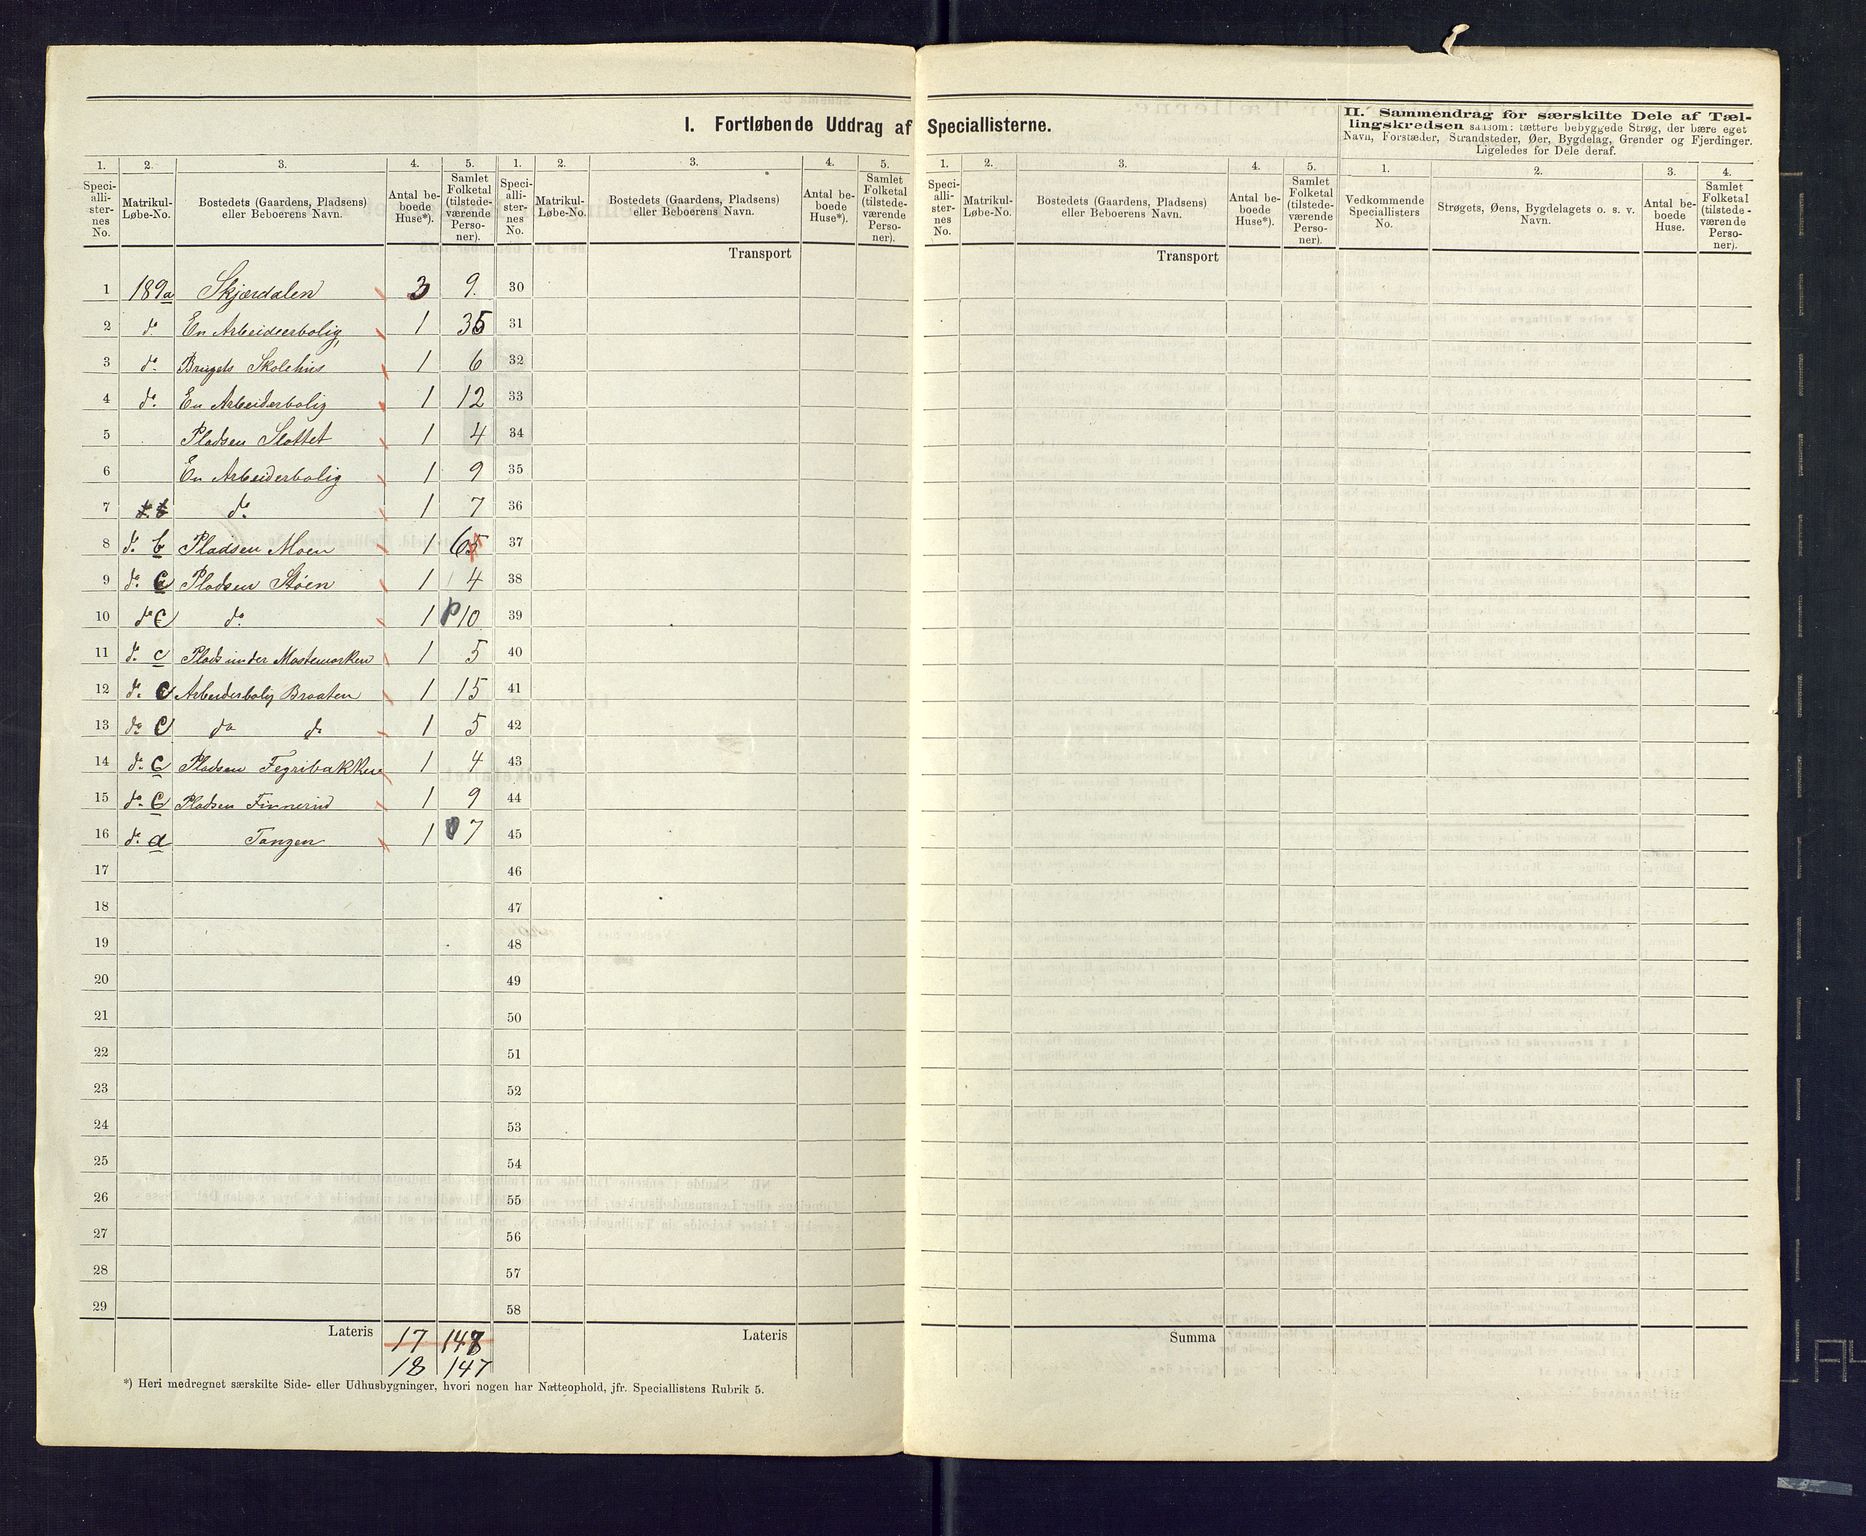 I. Fortløbende Uddrag af Speciallisterne.
II. Sammendrag for særskilte Dele af Tællingskredsen saasom: tættere bebyggede Strøg, der bære eget
Navn, Forstæder, Strandsteder, Øer, Bygdelag, Grender og Fjerdinger.
Ligeledes for Dele deraf.
1. 2. 3. 4. 5. 1. 2. 3. 4. 5. 1. 2. 3. 4. 5. 1. 2. 3. 4.
Speciallisternes No. Matrikul-Løbe-No. Bostedets (Gaardens, Pladsens) eller Beboerens Navn. Antal beboede Huse*). Samlet Folketal (tilstedeværende Personer).
Speciallisternes No. Matrikul-Løbe-No. Bostedets (Gaardens, Pladsens) eller Beboerens Navn. Antal beboede Huse*). Samlet Folketal (tilstedeværende Personer).
Speciallisternes No. Matrikul-Løbe-No. Bostedets (Gaardens, Pladsens) eller Beboerens Navn. Antal beboede Huse*). Samlet Folketal (tilstedeværende Personer).
Vedkommende Speciallisters No. Strøgets, Øens, Bygdelagets o. s. v. Navn. Antal beboede Huse. Samlet Folketal (tilstedeværende Personer).
Transport Transport
1 189a Skjærdalen 3 9. 30
2 do En Arbeiderbolig 1 35 31
3 do. Brugets Skolehus 1 6 32
4 do. En Arbeiderbolig 1 12 33
5 Pladsen Slottet 1 4 34
6 En Arbeiderbolig 1 9 35
7 do. 1 7 36
8 do. b Pladsen Moen 1 6 37
9 do. c Pladsen Støen 1 4 38
10 do c do. 1 10 39
11 do. c Plads under Mastemarken 1 5 40
12 do. c Arbeiderbolig Braaten 1 15 41
13 do. c do do 1 5 42
14 do. c Pladsen Tegribakken 1 4 43
15 do. c Pladsen Finnerud 1 9 44
16 do. d Tangen 1 7 45
17 46
18 47
19 48
20 49
21 50
22 51
23 52
24 53
25 54
26 55
27 56
28 57
29 58
Lateris 17 148 Lateris Summa
18 147
*) Heri medregnet særskilte Side- eller Udhusbygninger, hvori nogen har Natteophold, jfr. Speciallistens Rubrik 5.